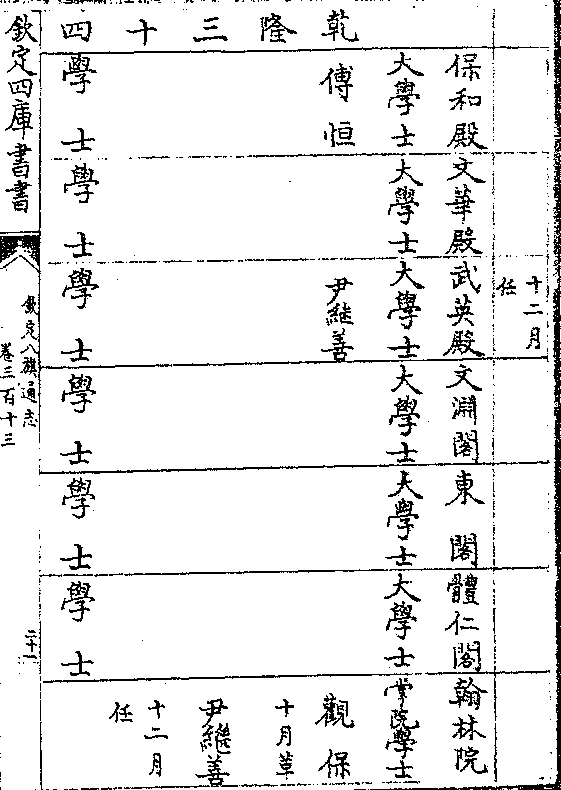 十二月
任
保和殿
文華殿
武英殿
文淵閣
東閣
體仁閣
翰林院
大學士
大學士
大學士
大學士
大學士
大學士
掌院學士
乾隆三十四
傅恒
尹継善
觀保
十月革
尹繼善
十二月
任
學士
學士
學士
學士
學士
學士
欽定四庫書書
欽定八旗通志
卷三百十三
二十一